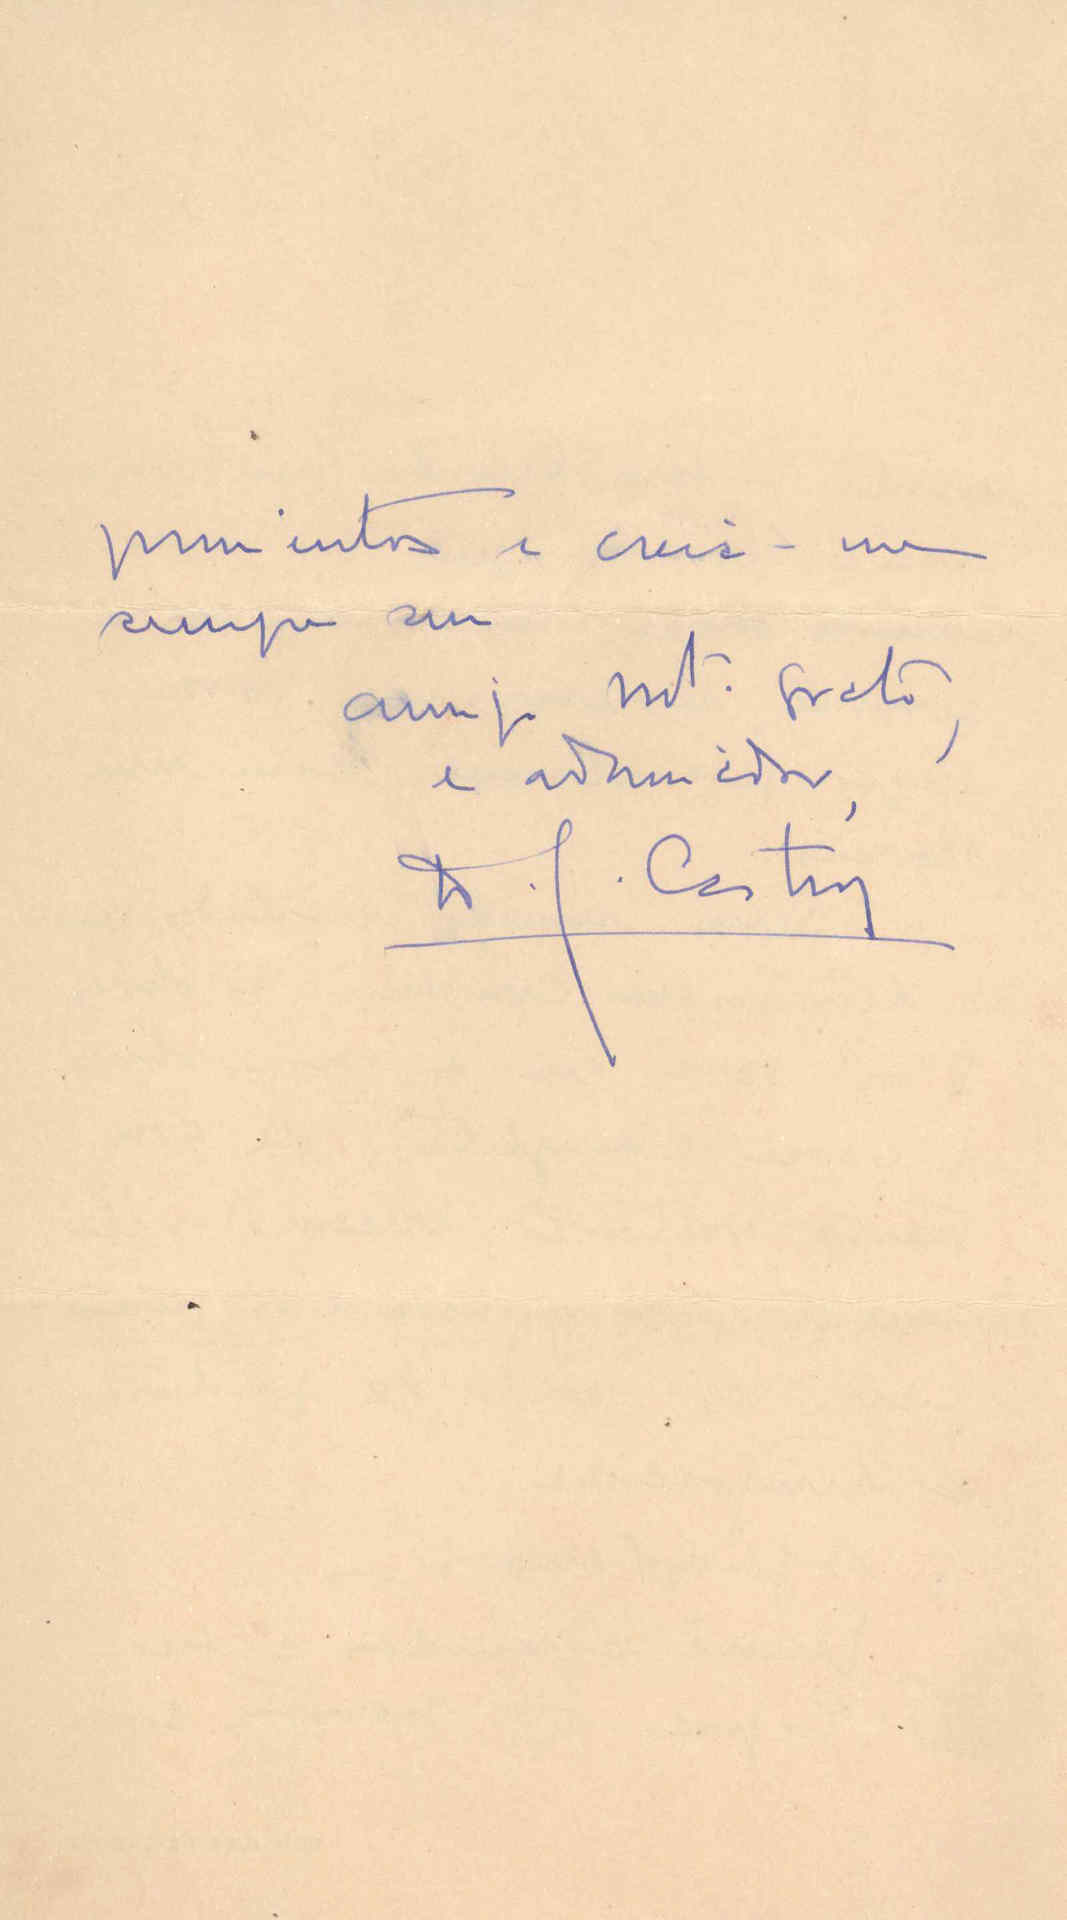 primentos e creia-me
sempre seu
amigo mtº. grato,
e admirador,
D. J. Castro